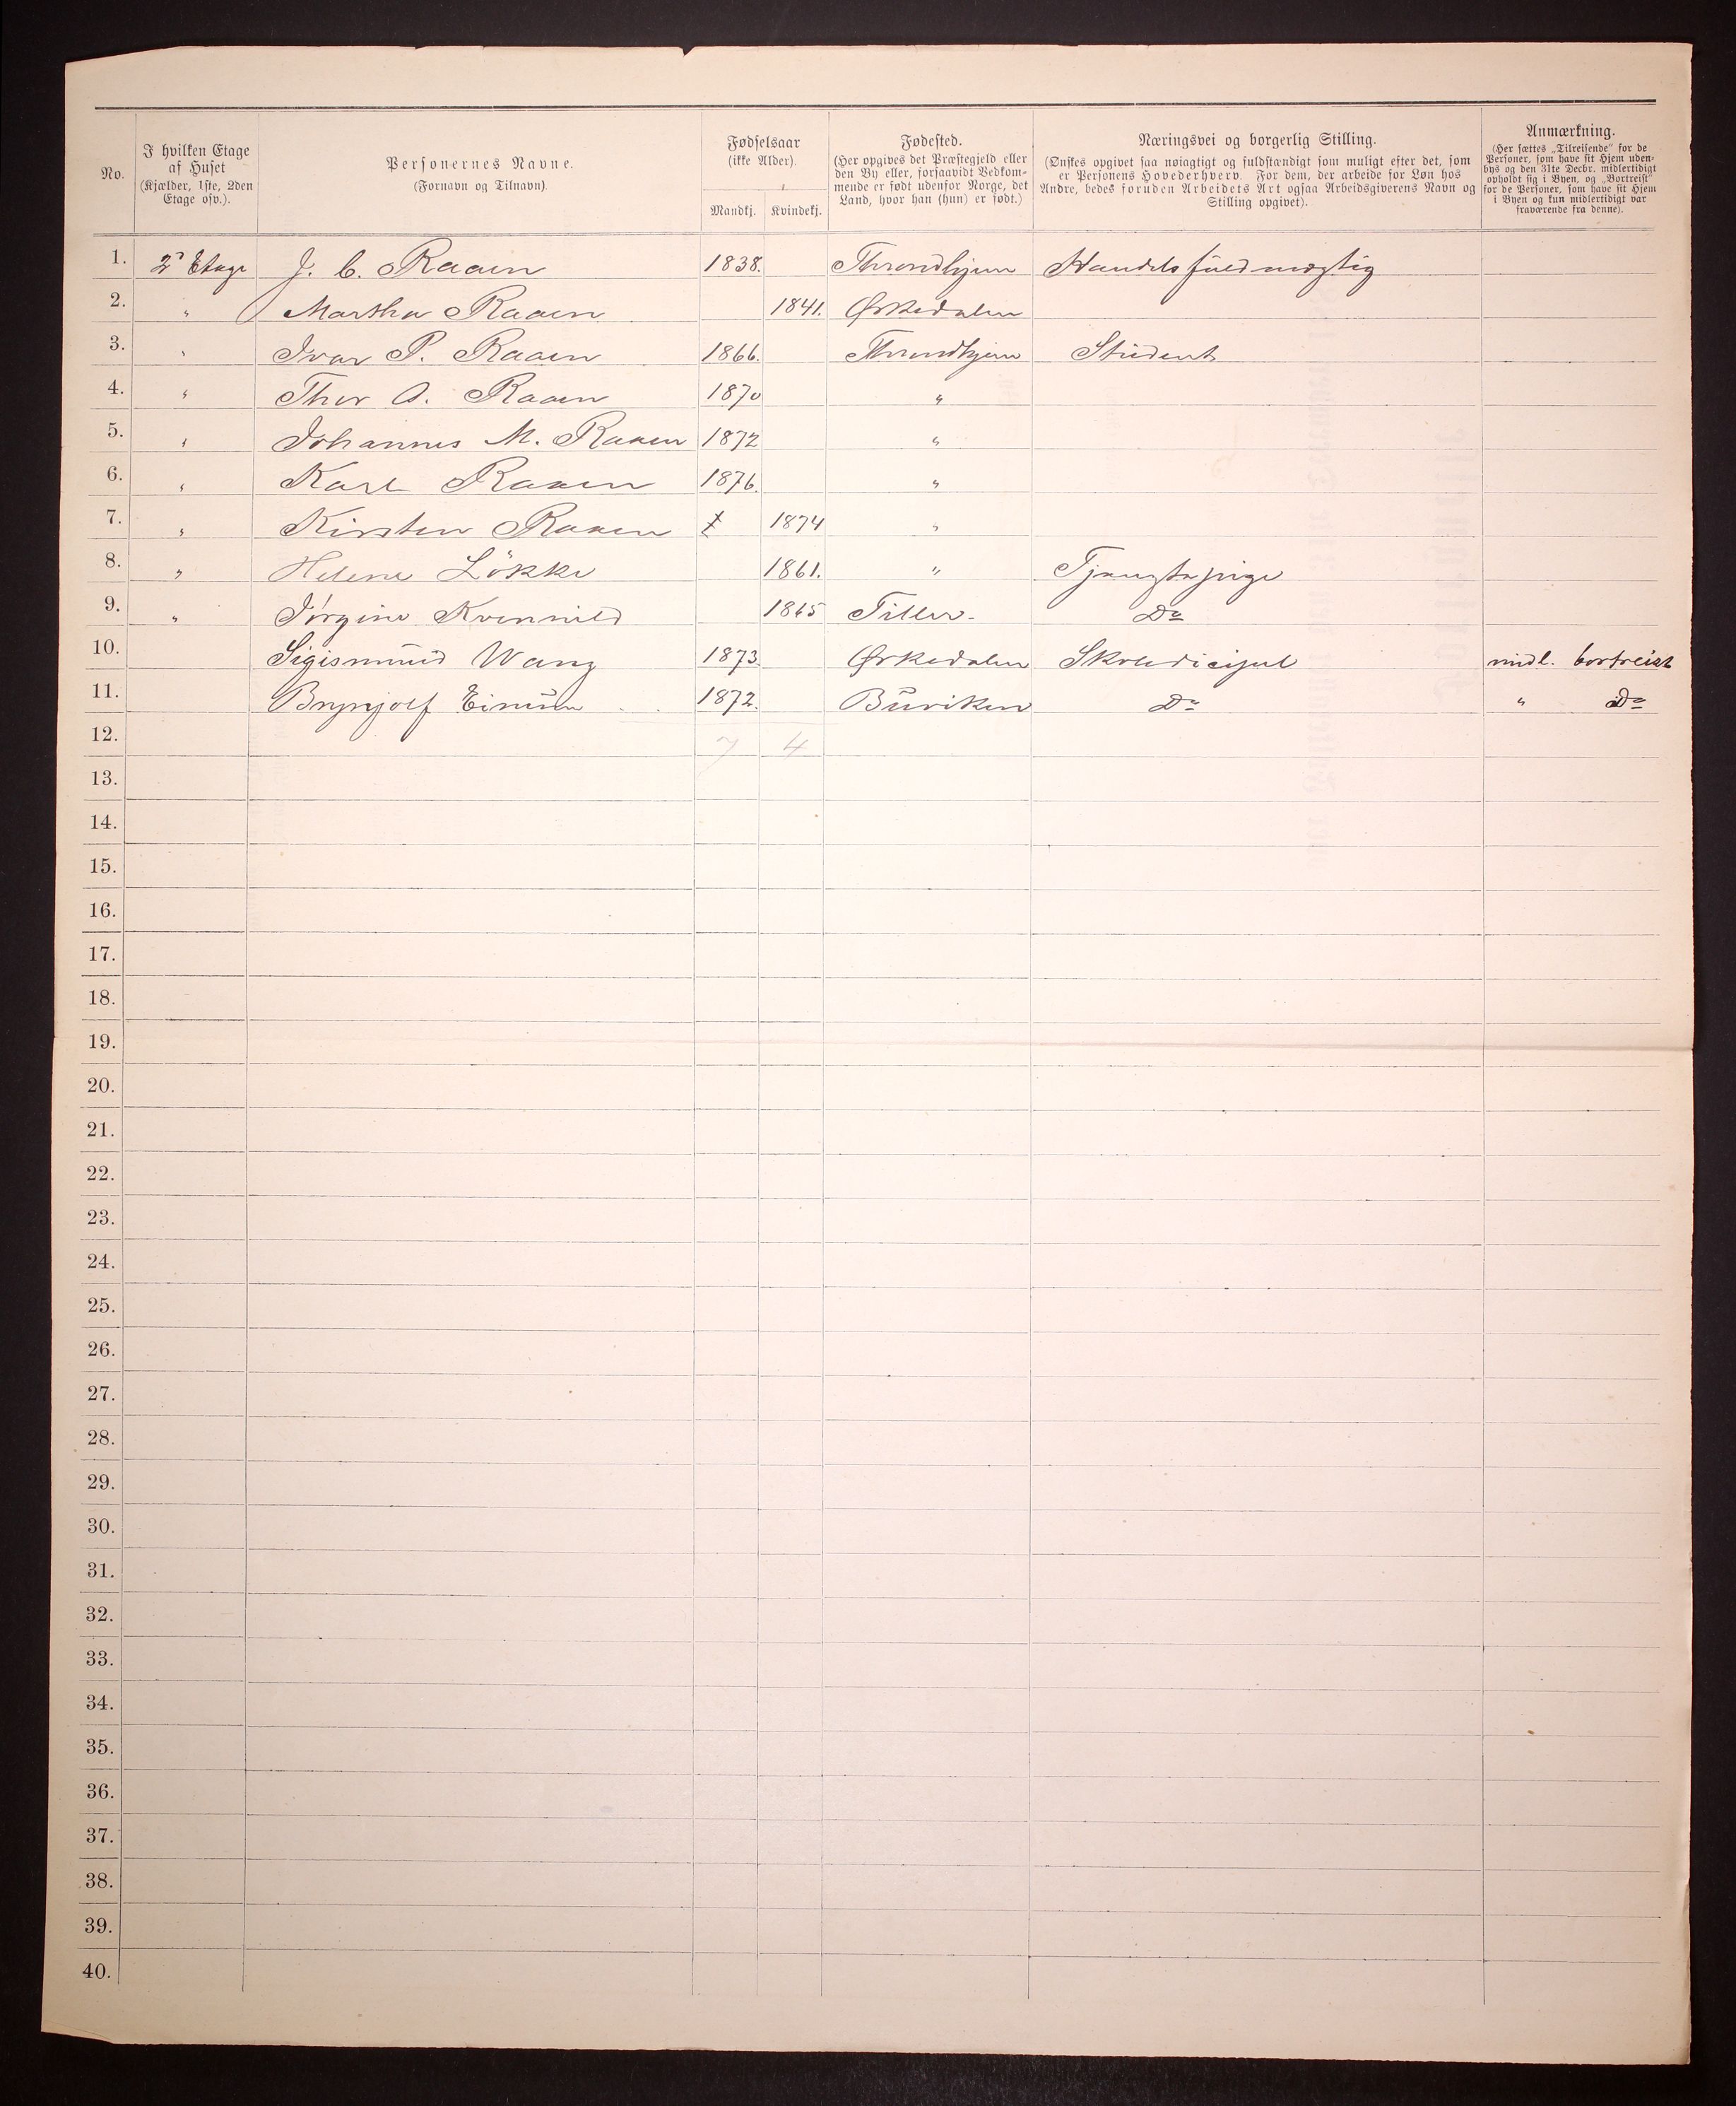 No.
I hvilken Etage
af Huset
(Kjælder, 1ste, 2den
Etage osv.).
Personernes Navne.
(Fornavn og Tilnavn).
Fødselsaar
(ikke Alder).
Mandkj. Kvindekj.
Fødested.
(Her opgives det Præstegjeld eller
den By eller, forsaavidt Vedkom-
mende er født udenfor Norge, det
Land, hvor han (hun) er født.)
Næringsvei og borgerlig Stilling.
(Ønskes opgivet saa nøiagtigt og fuldstændigt som muligt efter det, som
er Personens Hovederhverv. For dem, der arbeide for Løn hos
Andre, bedes foruden Arbeidets Art ogsaa Arbeidsgiverens Navn og
Stilling opgivet).
Anmærkning.
(Her sættes „Tilreisende" for de
Personer, som have sit Hjem uden-
bys og den 31te Decbr. midlertidigt
opholdt sig i Byen, og „Bortreist"
for de Personer, som have sit Hjem
i Byen og kun midlertidigt var
fraværende fra denne).
1. 2 Etage J. C. Raaen 1838. Throndhjem Handelsfuldmægtig
2. " Martha Raaen 1841. Ørkedalen
3. " Ivar P. Raaen 1866. Throndhjem Student
4. " Thor A. Raaen 1870 "
5. " Johannes M. Raaen 1872 "
6. " Karl Raaen 1876. "
7. " Kirsten Raaen 1874 "
8. " Helene Lökke 1861. " Tjenestepige
9. " Jørgine Kvenild 1865 Tiller. Do
10. Sigismund Wang 1873. Ørkedalen Skoledicipel midl. bortreist
11. Brynjolf Einum 1872. Buviken Do " Do
12. 7 4
13.
14.
15.
16.
17.
18.
19.
20.
21.
22.
23.
24.
25.
26.
27.
28.
29.
30.
31.
32.
33.
34.
35.
36.
37.
38.
39.
40.